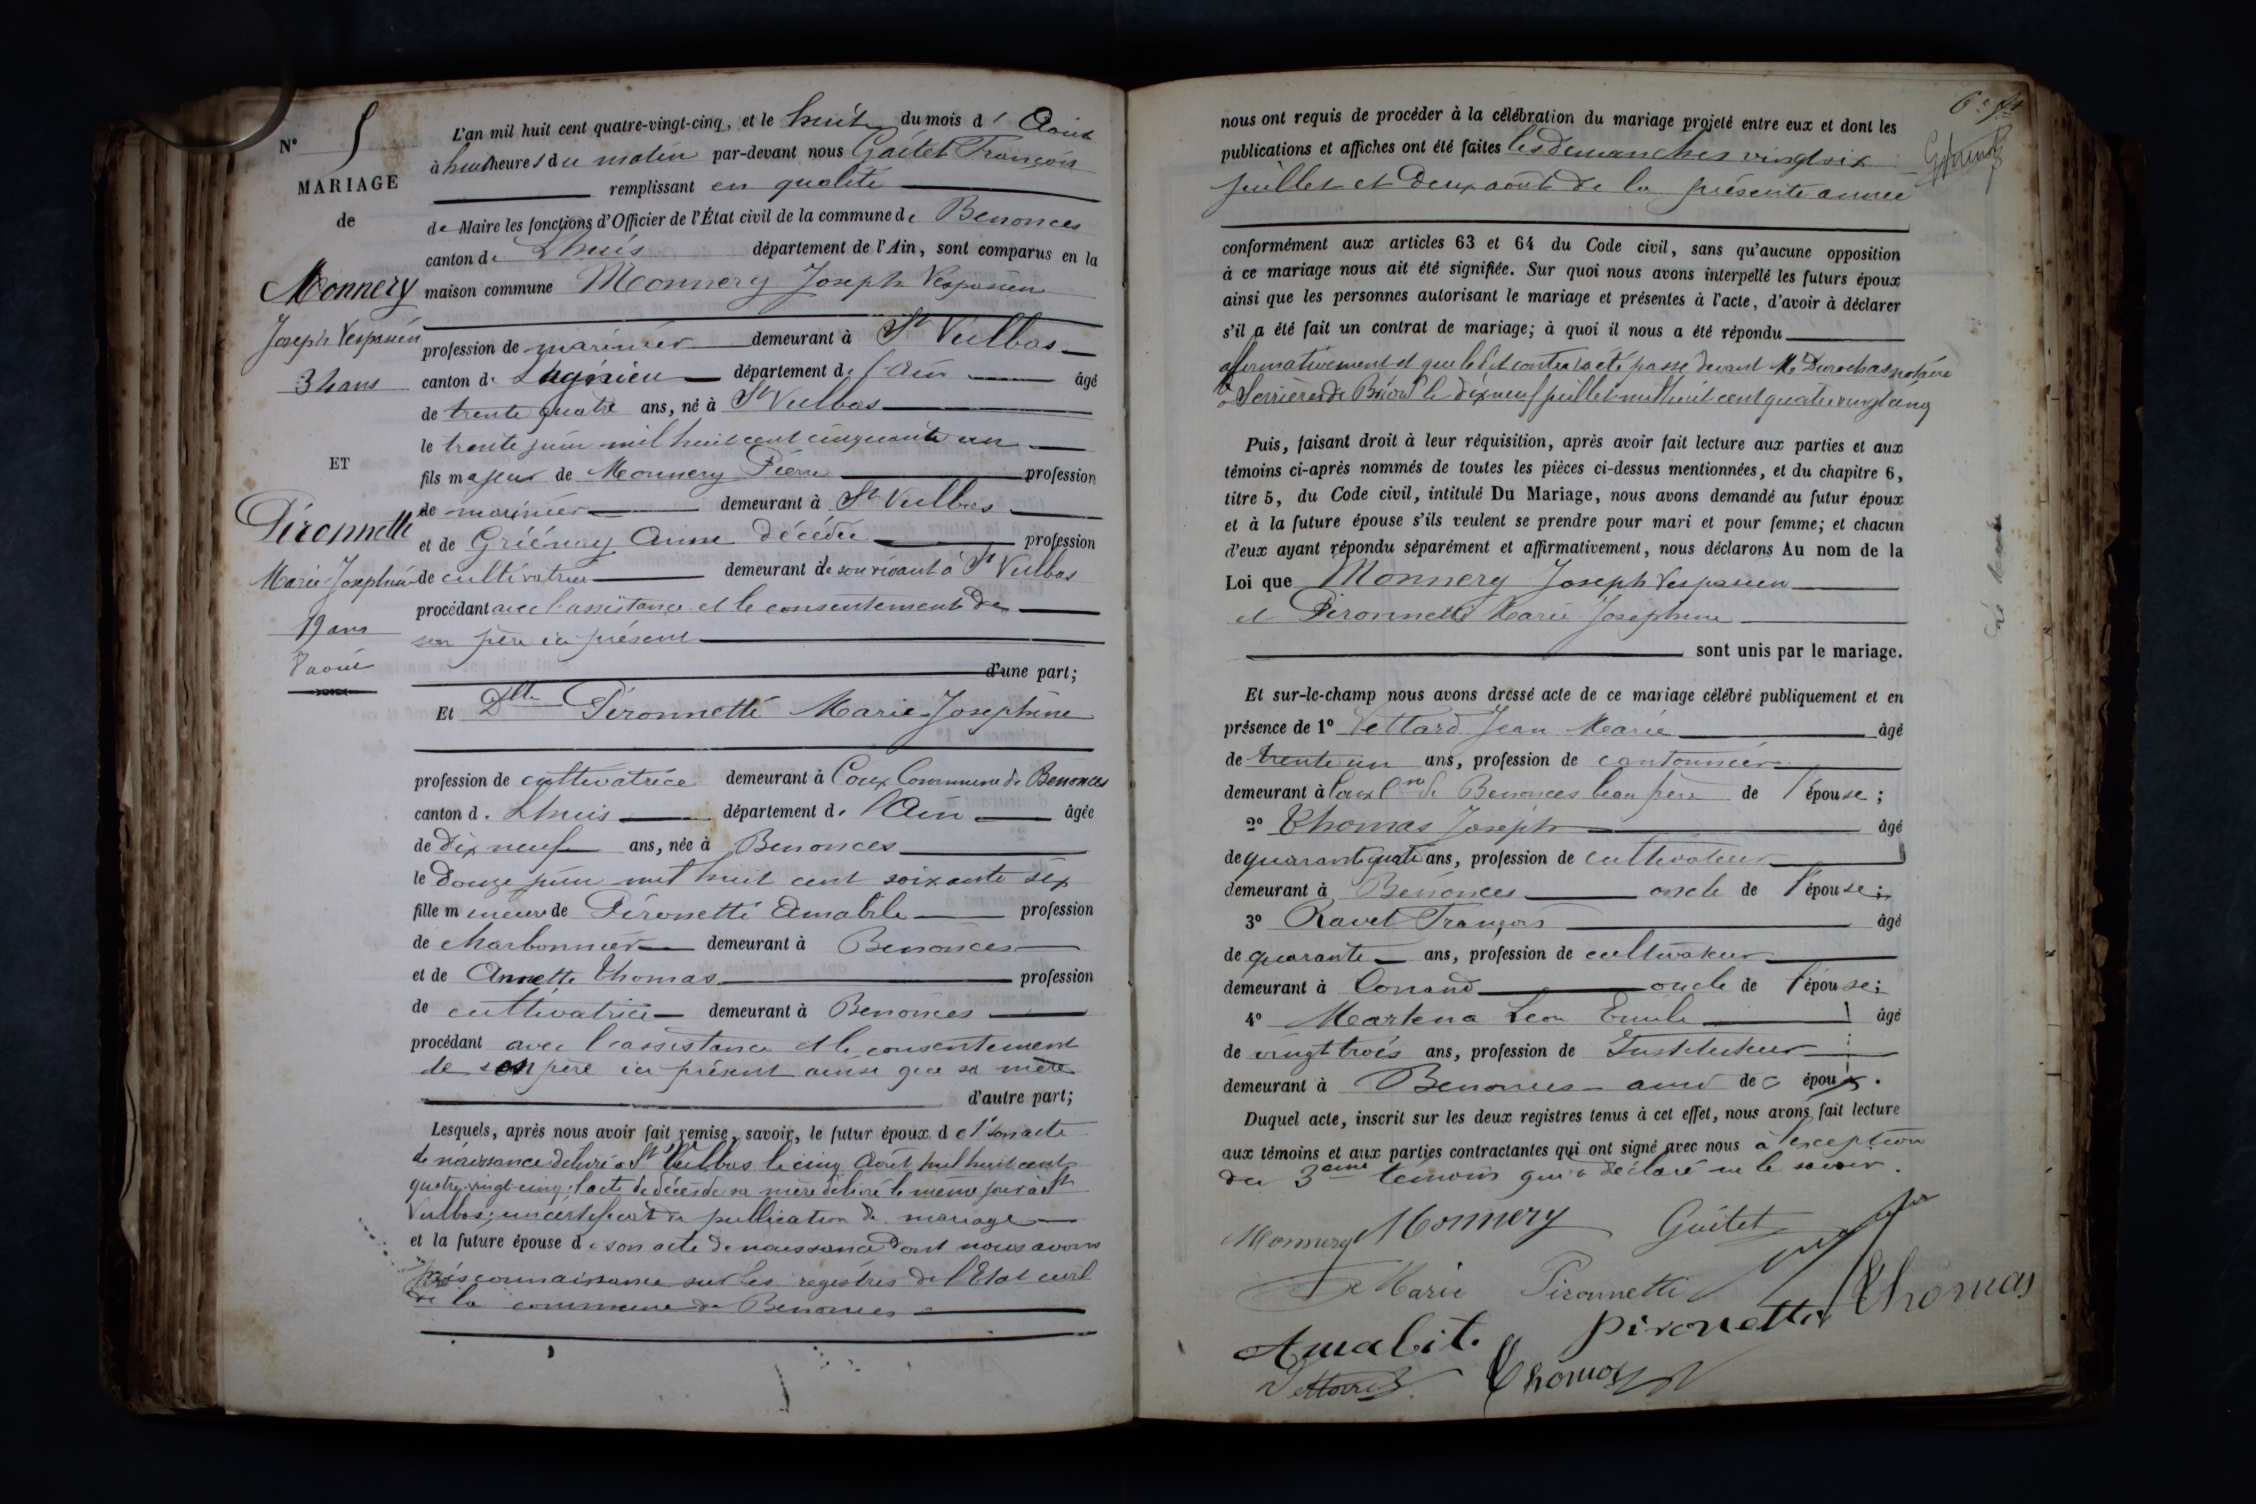 N° 5
MARIAGE
de
Monnery
Joseph Vespasien
34 ans
ET
Pironnetti
Marie Josephine
19 ans
8 août
L'an mil huit cent quatre-vingt-cinq, et le huit du mois d' Août
à huit heures du matin par-devant nous Guitet François
remplissant en qualité
de Maire les fonctions d'Officier de l'État civil de la commune de Benonces
canton de Lhuis département de l'Ain, sont comparus en la
maison commune Monnery Joseph Vespasien
profession de marinier demeurant à St Vulbas
canton de Lagnieu département de l'Ain âgé
de trente quatre ans, né à St Vulbas
le trente juin mil huit cent cinquante un
fils majeur de Monnery Pierre profession
de marinier demeurant à St Vulbas
et de Griénay Anne décédée profession
de cultivatrice demeurant de son vivant à St Vulbas
procédant avec l'assistance et le consentement de
son père ici présent
d'une part;
Et Dlle Pironnetti Marie Josephine
profession de cultivatrice demeurant à Coux Commune de Benonces
canton de Lhuis département de l'Ain âgée
de dix neuf ans, née à Benonces
le douze juin mil huit cent soixante six
fille mineure de Pironetti Amabile profession
de charbonnier demeurant à Benonces
et de Annette Thomas profession
de cultivatrice demeurant à Benonces
procédant avec l'assistance et le consentement
de son père ici présent ainsi que sa mère
d'autre part;
Lesquels, après nous avoir fait remise, savoir, le futur époux de 1° son acte
de naissance délivré à St Vulbas le cinq Août mil huit cent
quatre-vingt-cinq, l'acte de décès de sa mère délivré le même jour à St
Vulbas; un certificat de publication de mariage
et la future épouse de son acte de naissance dont nous avons
pris connaissance sur les registres de l'Etat civil
de la commune de Benonces
nous ont requis de procéder à la célébration du mariage projeté entre eux et dont les
publications et affiches ont été faites les dimanches vingt six
juillet et deux août de la présente année
conformément aux articles 63 et 64 du Code civil, sans qu'aucune opposition
à ce mariage nous ait été signifiée. Sur quoi nous avons interpellé les futurs époux
ainsi que les personnes autorisant le mariage et présentes à l'acte, d'avoir à déclarer
s'il a été fait un contrat de mariage; à quoi il nous a été répondu
affirmativement et que le dit contrat a été passé devant Me Durochas notaire
à Serrières de Briord le dix neuf juillet mil huit cent quatre vingt cinq
Puis, faisant droit à leur réquisition, après avoir fait lecture aux parties et aux
témoins ci-après nommés de toutes les pièces ci-dessus mentionnées, et du chapitre 6,
titre 5, du Code civil, intitulé Du Mariage, nous avons demandé au futur époux
et à la future épouse s'ils veulent se prendre pour mari et pour femme; et chacun
d'eux ayant répondu séparément et affirmativement, nous déclarons Au nom de la
Loi que Monnery Joseph Vespasien
et Pironnetti Marie Josephine
sont unis par le mariage.
Et sur-le-champ nous avons dressé acte de ce mariage célébré publiquement et en
présence de 1° Vettard Jean Marie âgé
de trente un ans, profession de cantonnier
demeurant à Coux Cne de Benonces beau frère de l'épouse;
2° Thomas Joseph âgé
de quarante quatre ans, profession de cultivateur
demeurant à Benonces oncle de l'épouse;
3° Ravet François âgé
de quarante ans, profession de cultivateur
demeurant à Conand oncle de l'épouse;
4° Martena Léon Emile âgé
de vingt trois ans, profession de Instituteur
demeurant à Benonces ami de époux.
Duquel acte, inscrit sur les deux registres tenus à cet effet, nous avons fait lecture
aux témoins et aux parties contractantes qui ont signé avec nous à l'exception
du 3eme témoin qui a déclaré ne le savoir.
Monnery Monnery Guitet
Marie Pironnetti
Thomas
Amabile pironetti
Vettard Thomas